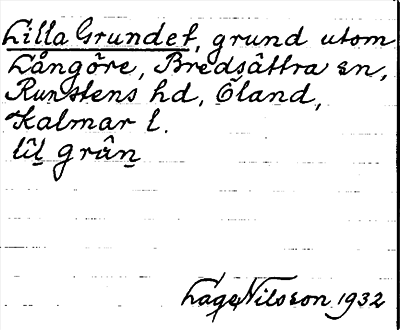 Lilla Grundet, grund utom
Långöre, Bredsättra sn,
Runstens hd, Öland,
Kalmar l.
lil grån
Lage Nilsson 1932